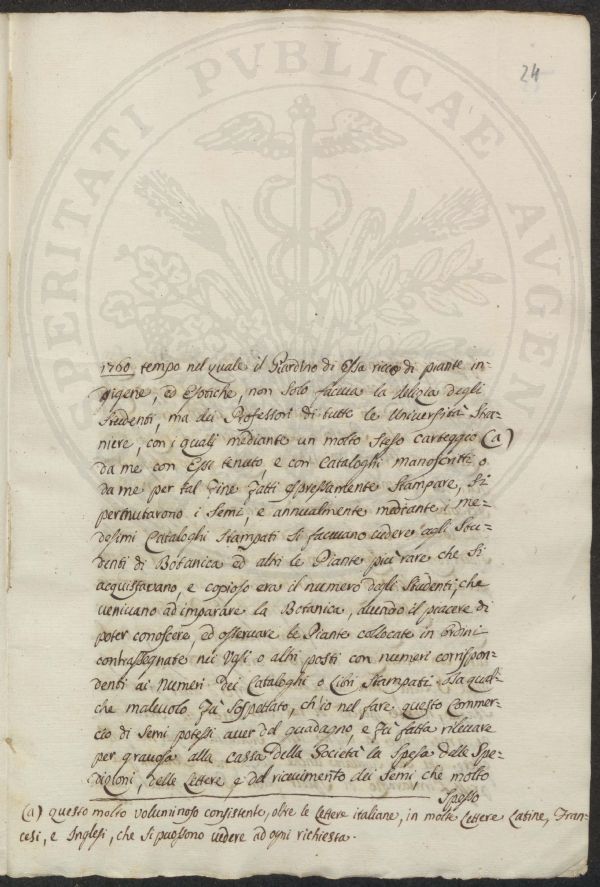 24
PROSPERITATI PUBLICAE AUGENDAE
1760, tempo nel quale il Giardino di Essa ricco di piante in-
digene, ed Esotiche, non solo faceva la delizia degli
Studenti, ma dei Professori di tutte le Università Stra-
niere, con i quali mediante un molto steso carteggio (a)
da me con Essi tenuto, e con Cataloghi manoscritti o
da me per tal fine fatti espressamente stampare, si
permutarono i Semi, e annualmente mediante i me-
desimi Cataloghi stampati si facevano vedere agli Stu-
denti di Botanica ed altri le Piante più rare che si
acquistavano, e copioso era il numero degli Studenti, che
venivano ad imparare la Botanica, avendo il piacere di
poter conoscere, ed osservare le Piante collocate in ordini
contrassegnate nei Vasi o altri posti con numeri corrispon-
denti ai Numeri dei Cataloghi o Libri Stampati. Da qual-
che malevolo fù sospettato, ch'io nel fare questo Commer-
cio di Semi potessi aver del guadagno, e fù fatta rilevare
per gravosa alla cassa della Società la spesa delle Spe-
dizioni, delle Lettere, e del ricevimento dei Semi, che molto
spesso
(a) questo molto voluminoso consistente, oltre le Lettere italiane, in molte Lettere Latine, Fran-
cesi, e Inglesi, che si possono vedere ad ogni richiesta.